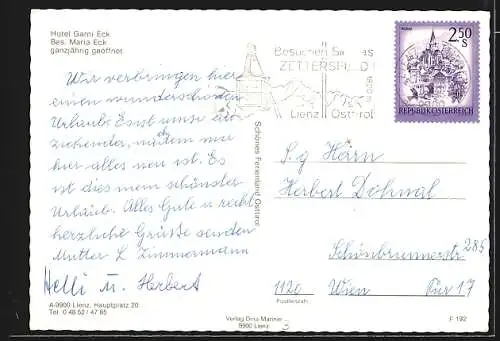 Hotel Garni Eck
Bes. Maria Eck
ganzjährig geöffnet
Wir verbringen hier
einen wunderschönen
Urlaub. Es ist unser
hier alles neu ist. Es
ist dies mein schönster
Urlaub. Alles Gute u recht
herzliche Grüße senden
Mutter L Zimmermann
Helli u. Herbert
A-9900 Lienz, Hauptplatz 20
Tel 0 48 52 / 47 85
Schönes Ferienland Osttirol
Verlag Dina-Mariner
9900 Lienz
Besuchen Sie das
Lienz Osttirol
2,50
S
REPUBLIK ÖSTERREICH
S.g Herrn
Herbert Dohnal
Schönbrunnerstr 285
1120 Wien Tür 17
Postleitzahl
F 192